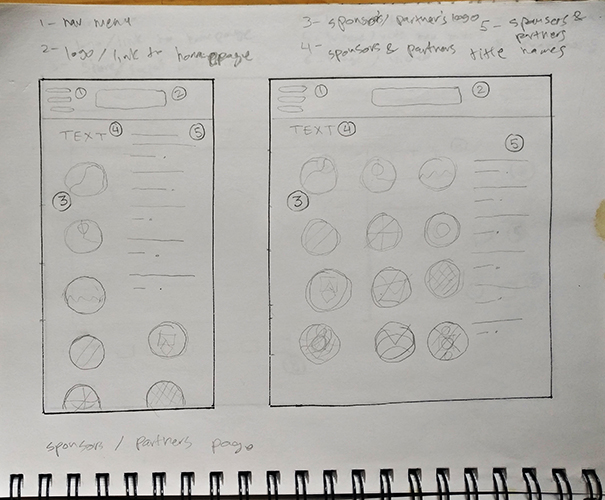 1- nav menu
2- logo / link to homepage
3- sponsors/ partner's logo
4- sponsors & partners title
5- sponsors & partners names
1
2
TEXT 4
5
3
1
2
TEXT 4
5
3
sponsors / partners page